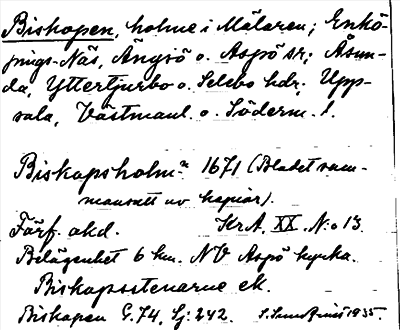 Biskopen, holme i Mälaren; Enkö-
pings-Näs, Ängsö o. Aspö sr; Åsun-
da, Yttertjurbo o. Selebo hdr; Upp-
sala, Västmanl. o. Söderm. l.
Biskopsholmn 1671 (Bladet sam-
mansatt av kopior).
Förf. okd. KrA, XX. N:o 13.
Belägenhet 6 km. NV Aspö kyrka.
Biskopsstenarne ek.
Biskopen G. 74, Lj: 242. 1935.